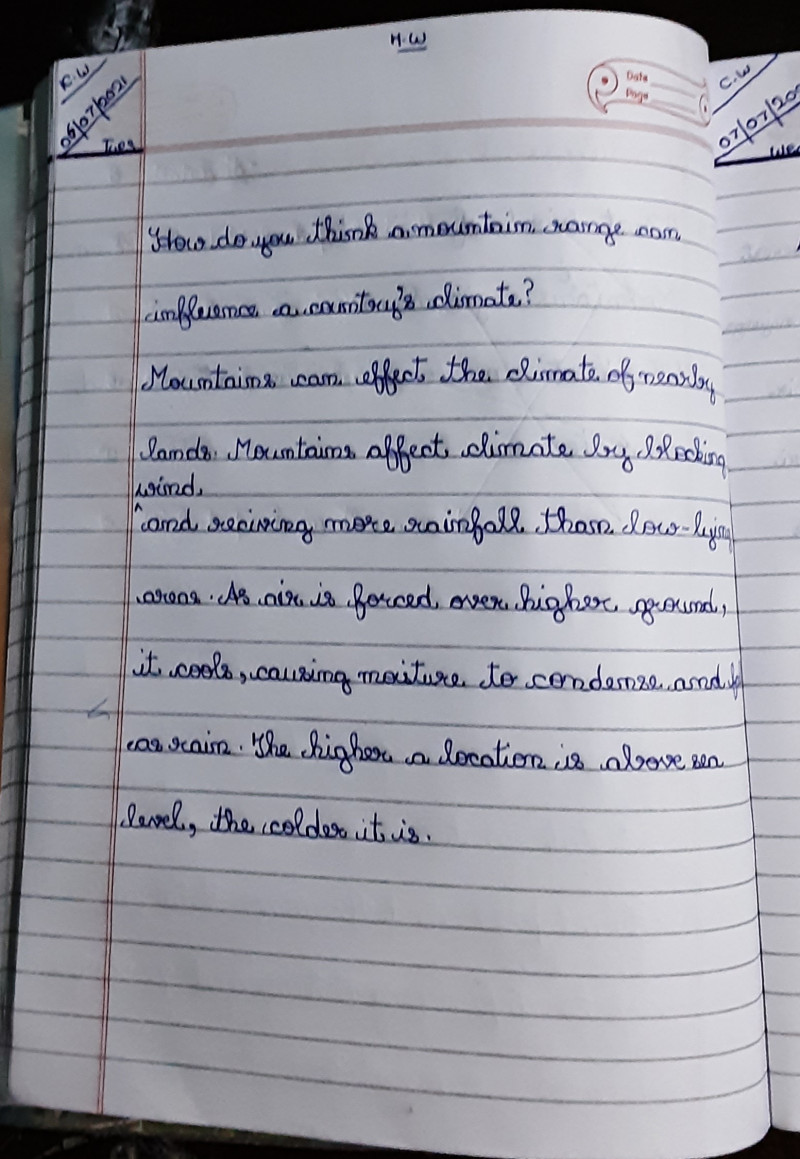 H.W
C.W
06/07/2021
Tues
Date
Page
How do you think a mountain range can
influence a country's climate?
Mountains can effect the climate of nearby
lands. Mountains affect climate by blocking
wind,
^and reciving more rainfall than low-lying
areas. As air is forced over higher ground,
it cools, causing moiture to condense and
as rain. The higher a location is above sea
level, the colder it is.
C.W
07/07/20
Wed